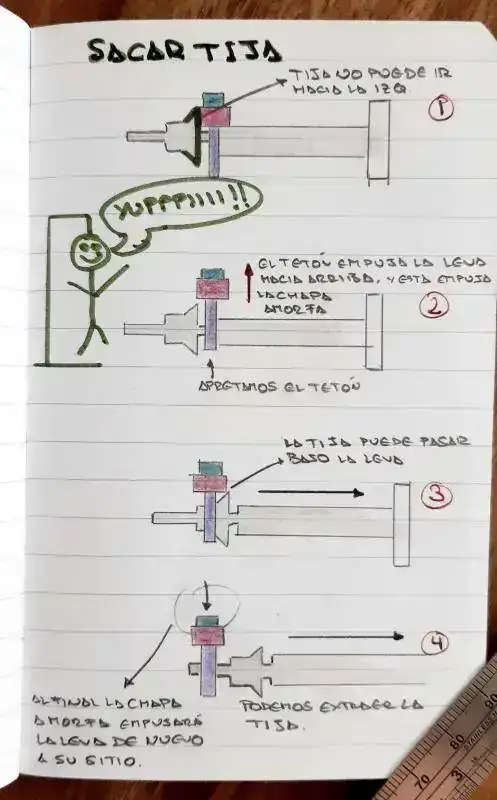 SACAR TIJA
TIJA NO PUEDE IR
HACIA LA IZQ.
1
YUPPPIIII!!
EL TETÓN EMPUJA LA LEVA
HACIA ARRIBA, Y ESTA EMPUJA
LA CHAPA
AMORFA
2
APRETAMOS EL TETÓN
LA TIJA PUEDE PASAR
BAJO LA LEVA
3
4
AL FINAL LA CHAPA
AMORFA EMPUJARÁ
LA LEVA DE NUEVO
A SU SITIO.
PODEMOS EXTRAER LA
TIJA.
90
80
70
3
STAINLESS